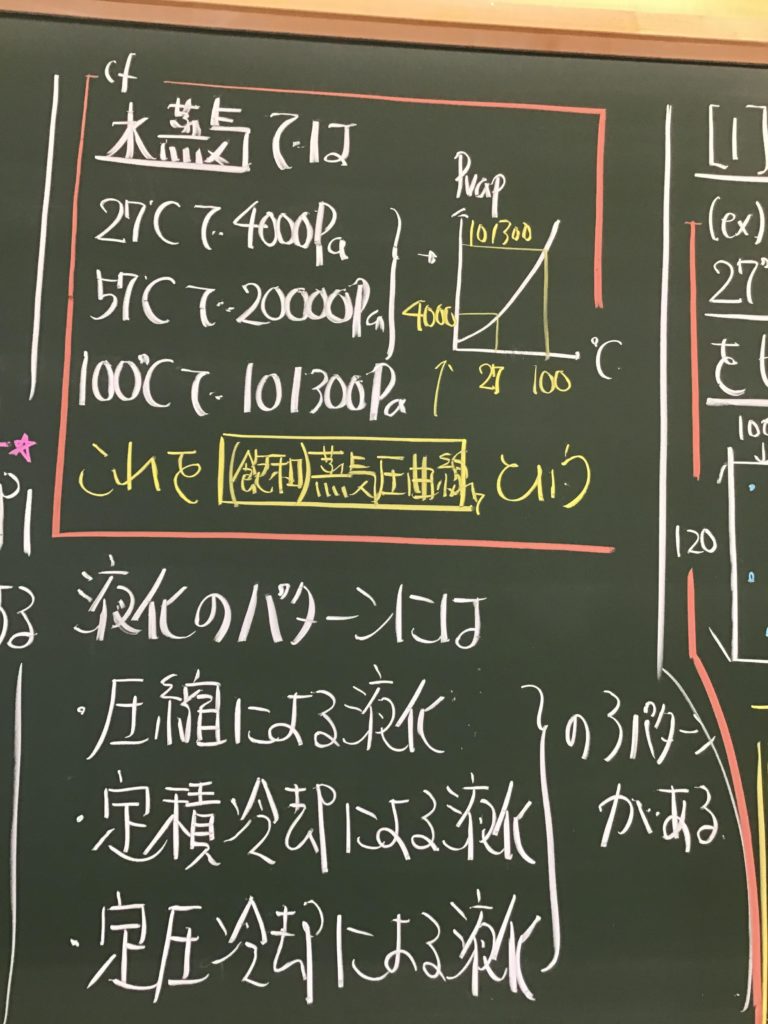 cf
水蒸気では
27℃で4000Pa
57℃で20000Pa
100℃で101300Pa
→
Pvap
101300
4000
27 100 ℃
↑
これを(飽和)蒸気圧曲線という
液化のパターンには
・圧縮による液化
・定積冷却による液化
・定圧冷却による液化
の3パターン
がある
[1]
(ex)
27°
を
100
120
る